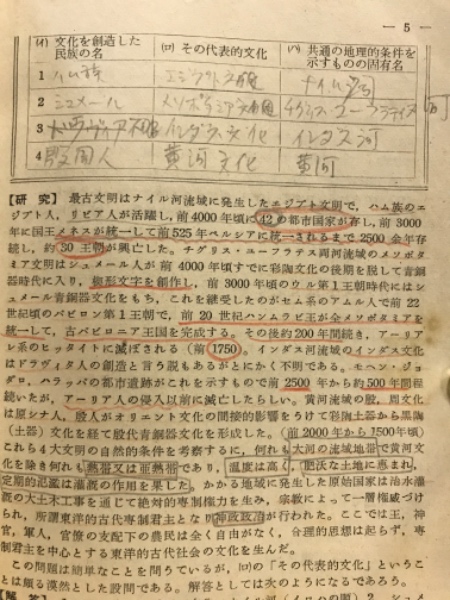 — 5 —
(イ) 文化を創造した民族の名 (ロ) その代表的文化 (ハ) 共通の地理的条件を示すものの固有名
1 ハム族 エジプト文明 ナイル河
2 シュメール メソポタミア文明 チグリス・ユーフラテス河
3 ドラヴィア インダス文化 インダス河
4 殷周人 黄河文化 黄河
【研 究】 最古文明はナイル河流域に発生したエジプト文明で，ハム族のエ
ジプト人，リビア人が活躍し，前4000年頃に42の都市国家が存し，前3000
年に国王メネスが統一して前525年ペルシアに統一されるまで2500余年存
続し，約30王朝が興亡した。チグリス・ユーフラテス両河流域のメソポタ
ミア文明はシュメール人が前4000年頃すでに彩陶文化の後期を脱して青銅
器時代に入り，楔形文字を創作し，前3000年頃のウル第1王朝時代にはシ
ュメール青銅器文化をもち，これを継受したのがセム系のアムル人で前22
世紀頃のバビロン第1王朝で，前20世紀ハンムラビ王が全メソポタミアを
統一して，古バビロニア王国を完成する。その後約200年間続き，アーリア
レ系のヒッタイトに滅ぼされる（前1750）。インダス河流域のインダス文化
はドラヴィダ人の創造と言う説もあるがとにかく不明である。モヘン・ジョ
ダロ，ハラッパの都市遺跡がこれを示すもので前2500年から約500年間程
続いたが，アーリア人の侵入以前に滅亡したらしい。黄河流域の殷，周文化
は原シナ人，殷人がオリエント文化の間接的影響をうけて彩陶土器から黒陶
（土器）文化を経て殷代青銅器文化を形成した。（前2000年から1500年頃）
これら4大文明の自然的条件を考察するに，何れも大河の流域地帯で黄河文
化を除き何れも熱帯又は亜熱帯であり，温度は高く，肥沃な土地に恵まれ，
定期的氾濫は灌漑の作用を果した。かかる地域に発生した原始国家は治水灌
漑の大土木工事を通じて絶対的専制権力を生み，宗教によって一層権威づけ
られ，所謂東洋的古代専制君主となり神政政治が行われた。ここでは王，神
官，軍人，官僚の支配下の農民は全く自由がなく，合理的思想は起らず，専
制君主を中心とする東洋的古代社会の文化を生んだ。
この問題は簡単なことを問うているが，(ロ)の「その代表文化」というこ
とは頗る漠然とした設問である。解答としては次のようになるであろう。